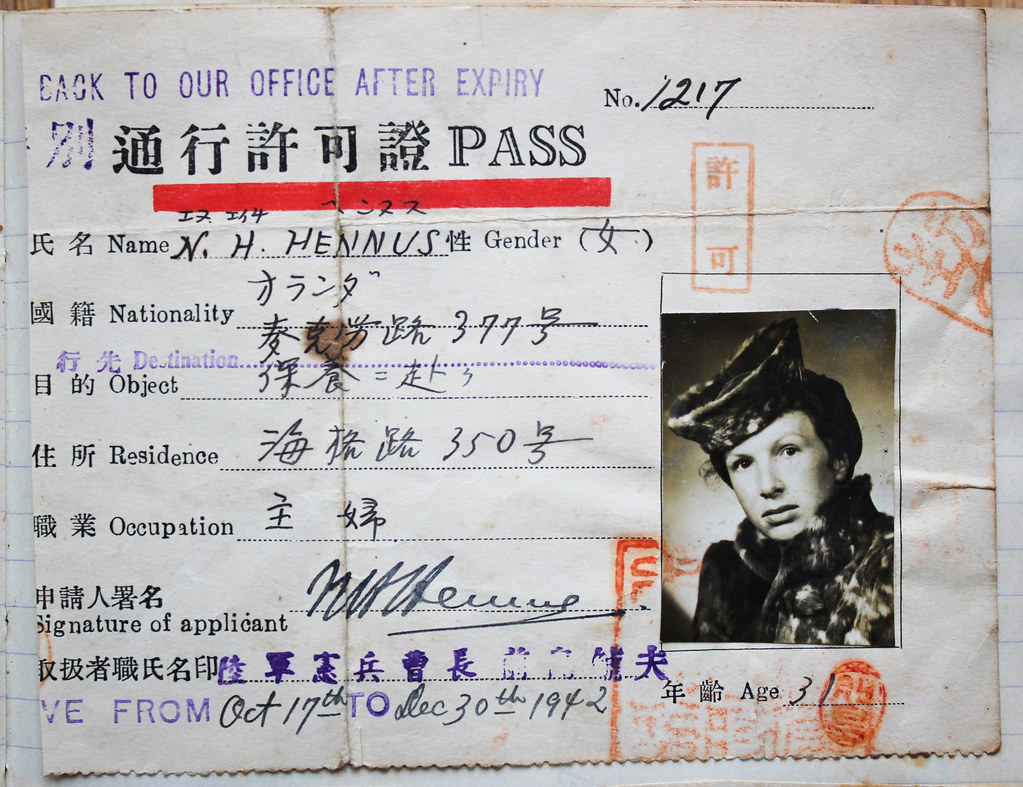 BACK TO OUR OFFICE AFTER EXPIRY
No. 1217
別 通行許可證 PASS
許可
エヌ エイチ ヘンヌス
氏名 Name N. H. HENNUS 性 Gender (女)
オランダ
國籍 Nationality
麥克労路 377号
行先 Destination
保養ニ赴ク
目的 Object
住所 Residence 海格路 350号
職業 Occupation 主婦
申請人署名
Signature of applicant NHHennus
取扱者職氏名印 陸軍憲兵曹長 夫
年齡 Age 31
VE FROM Oct 17th TO Dec 30th 1942